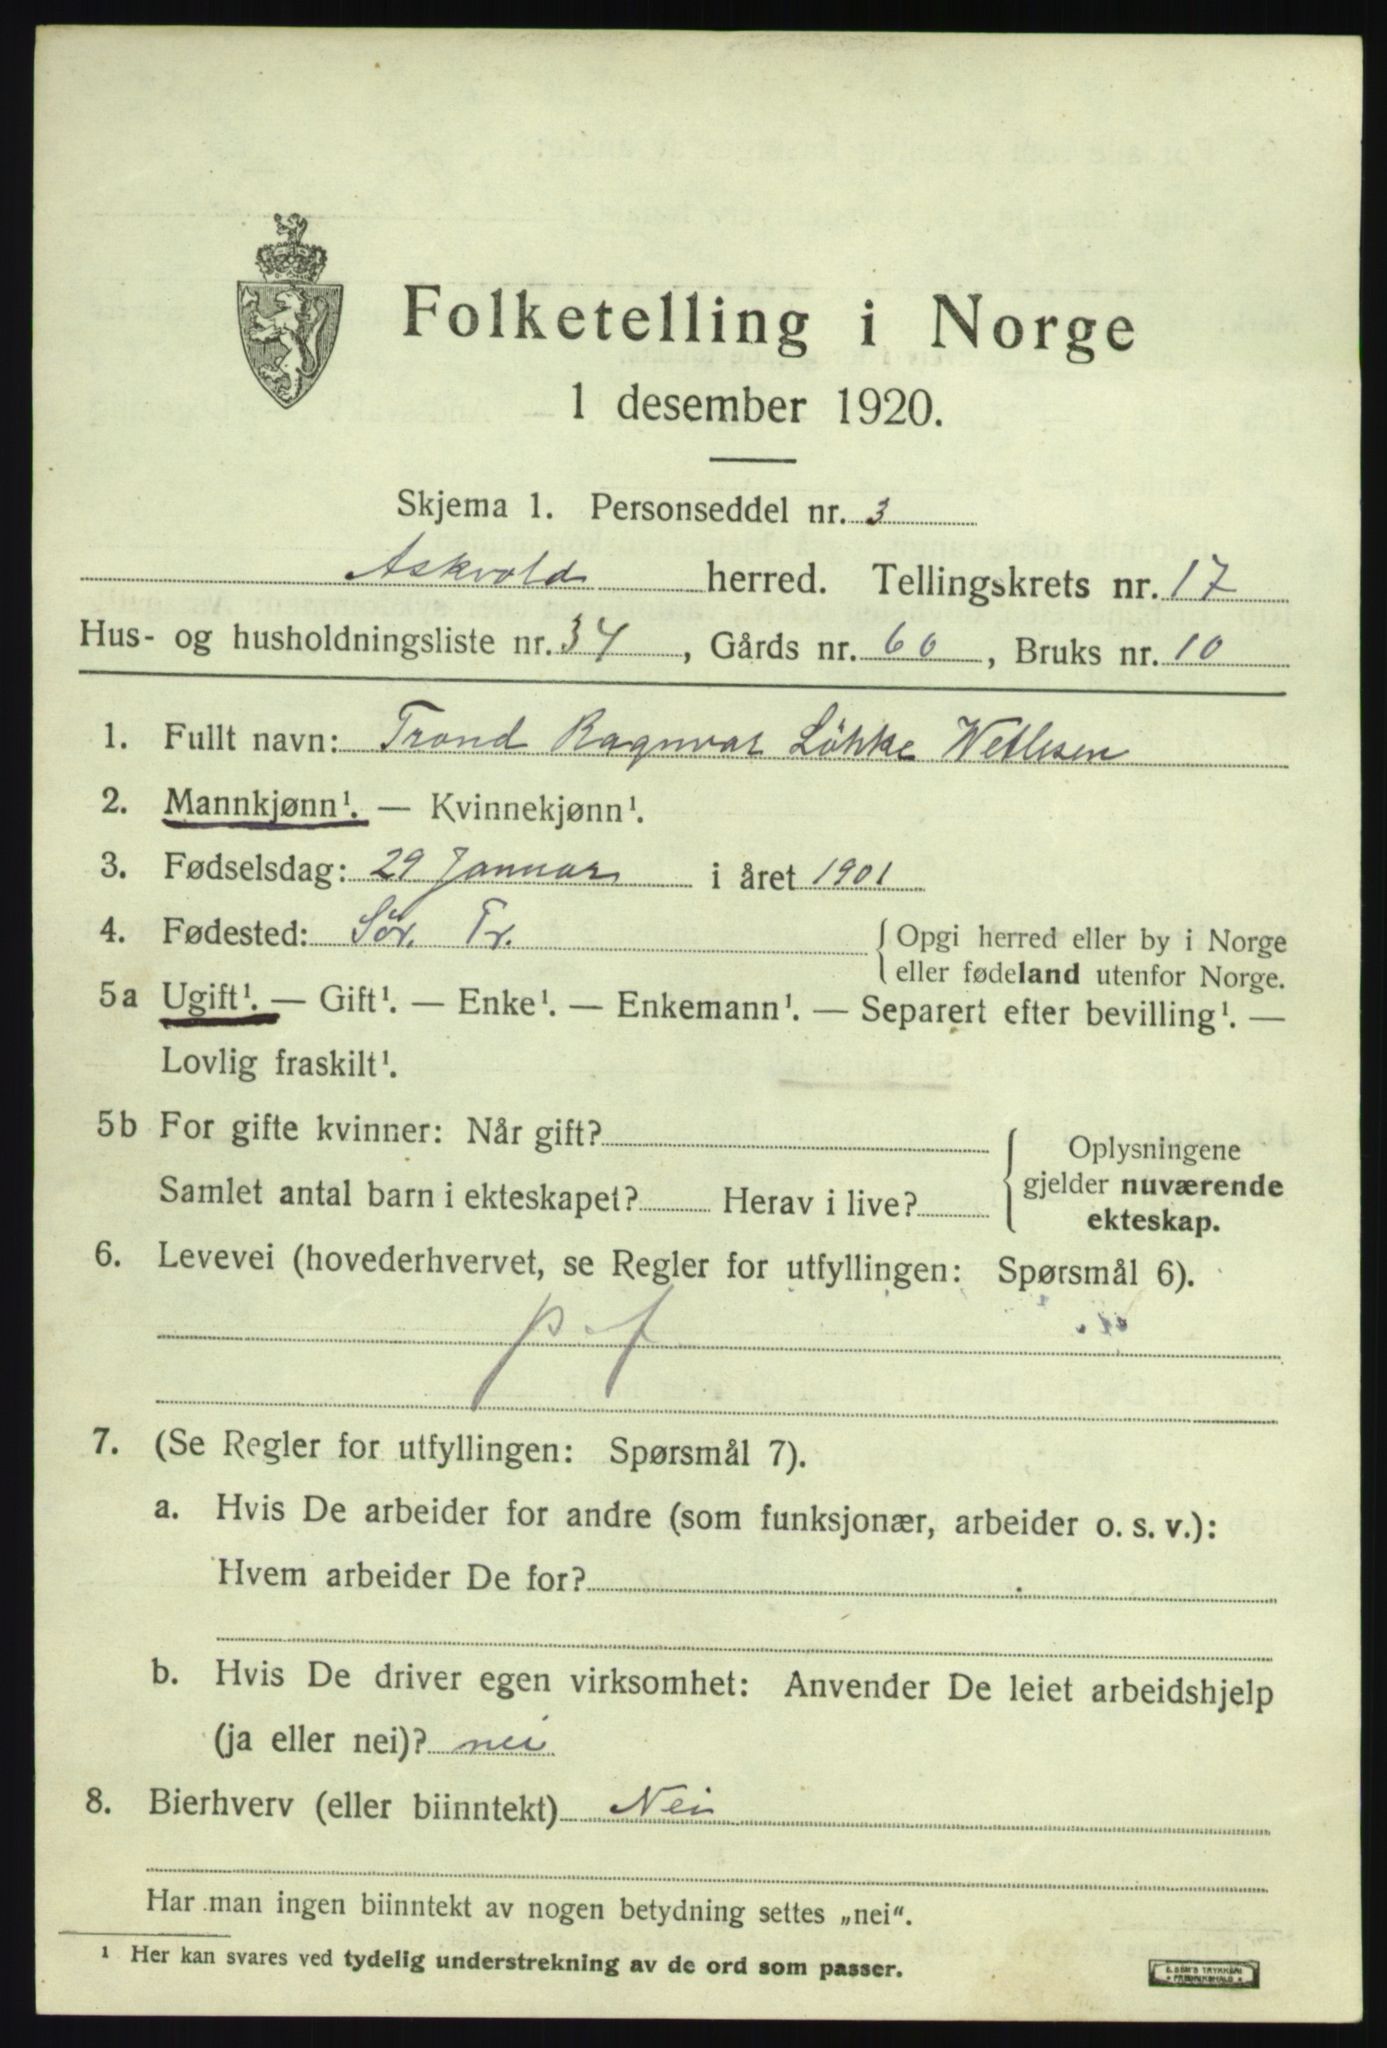 Folketelling i Norge
1 desember 1920.
Skjema 1. Personseddel nr. 3
Askvold herred. Tellingskrets nr. 17
Hus- og husholdningsliste nr. 34, Gårds nr. 60, Bruks nr. 10
1. Fullt navn: Trond Ragnvar Löhke Wetlesen
2. Mannkjønn¹. — Kvinnekjønn¹.
3. Fødselsdag: 29 Januar i året 1901
4. Fødested: Sör. Tr. { Opgi herred eller by i Norge
eller fødeland utenfor Norge.
5a Ugift¹. — Gift¹. — Enke¹. — Enkemann¹. — Separert efter bevilling¹. —
Lovlig fraskilt¹.
5b For gifte kvinner: Når gift?
Samlet antal barn i ekteskapet? Herav i live?
{ Oplysningene
gjelder nuværende
ekteskap.
6. Levevei (hovederhvervet, se Regler for utfyllingen: Spørsmål 6).
p f
7. (Se Regler for utfyllingen: Spørsmål 7).
a. Hvis De arbeider for andre (som funksjonær, arbeider o. s. v.):
Hvem arbeider De for?
b. Hvis De driver egen virksomhet: Anvender De leiet arbeidshjelp
(ja eller nei)? nei
8. Bierhverv (eller biinntekt) Nei
Har man ingen biinntekt av nogen betydning settes „nei".
¹ Her kan svares ved tydelig understrekning av de ord som passer.